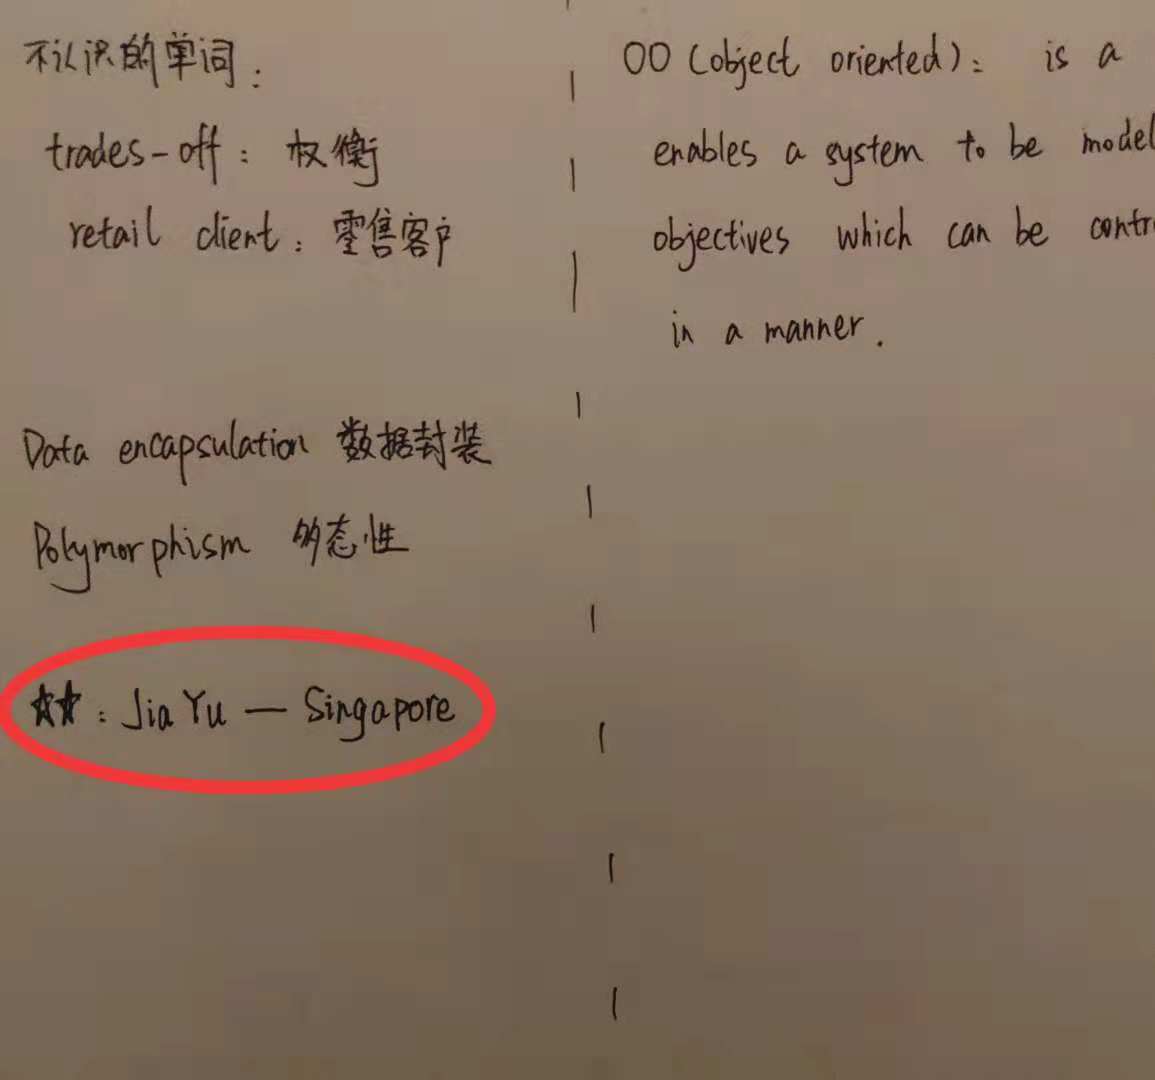 不认识的单词：
trades-off：权衡
retail client：零售客户
Data encapsulation 数据封装
Polymorphism 多态性
★★：Jia Yu — Singapore
OO (object oriented)： is a
enables a system to be model
objectives which can be contr
in a manner.